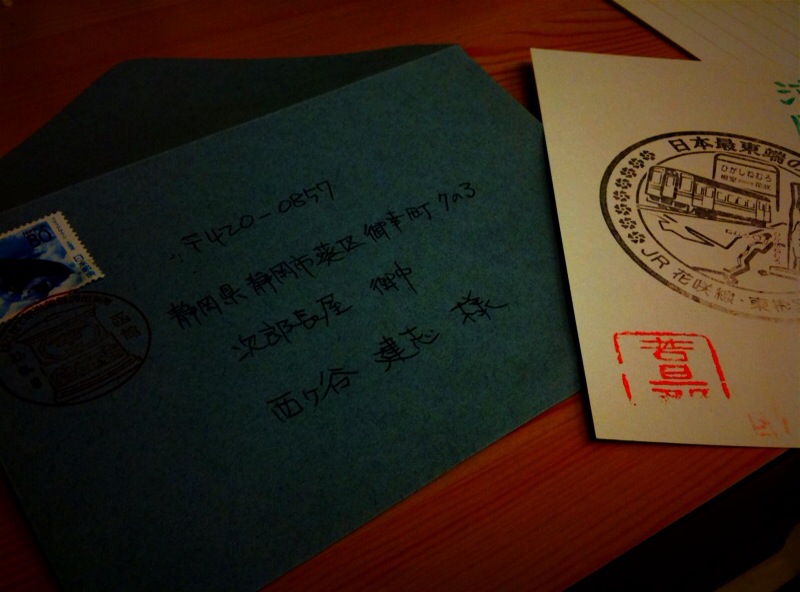 〒420-0857
静岡県静岡市葵区御幸町7の3
次郎長屋 御中
西ヶ谷 建志 様
日本最東端の
ひがしねむろ
JR花咲線・東